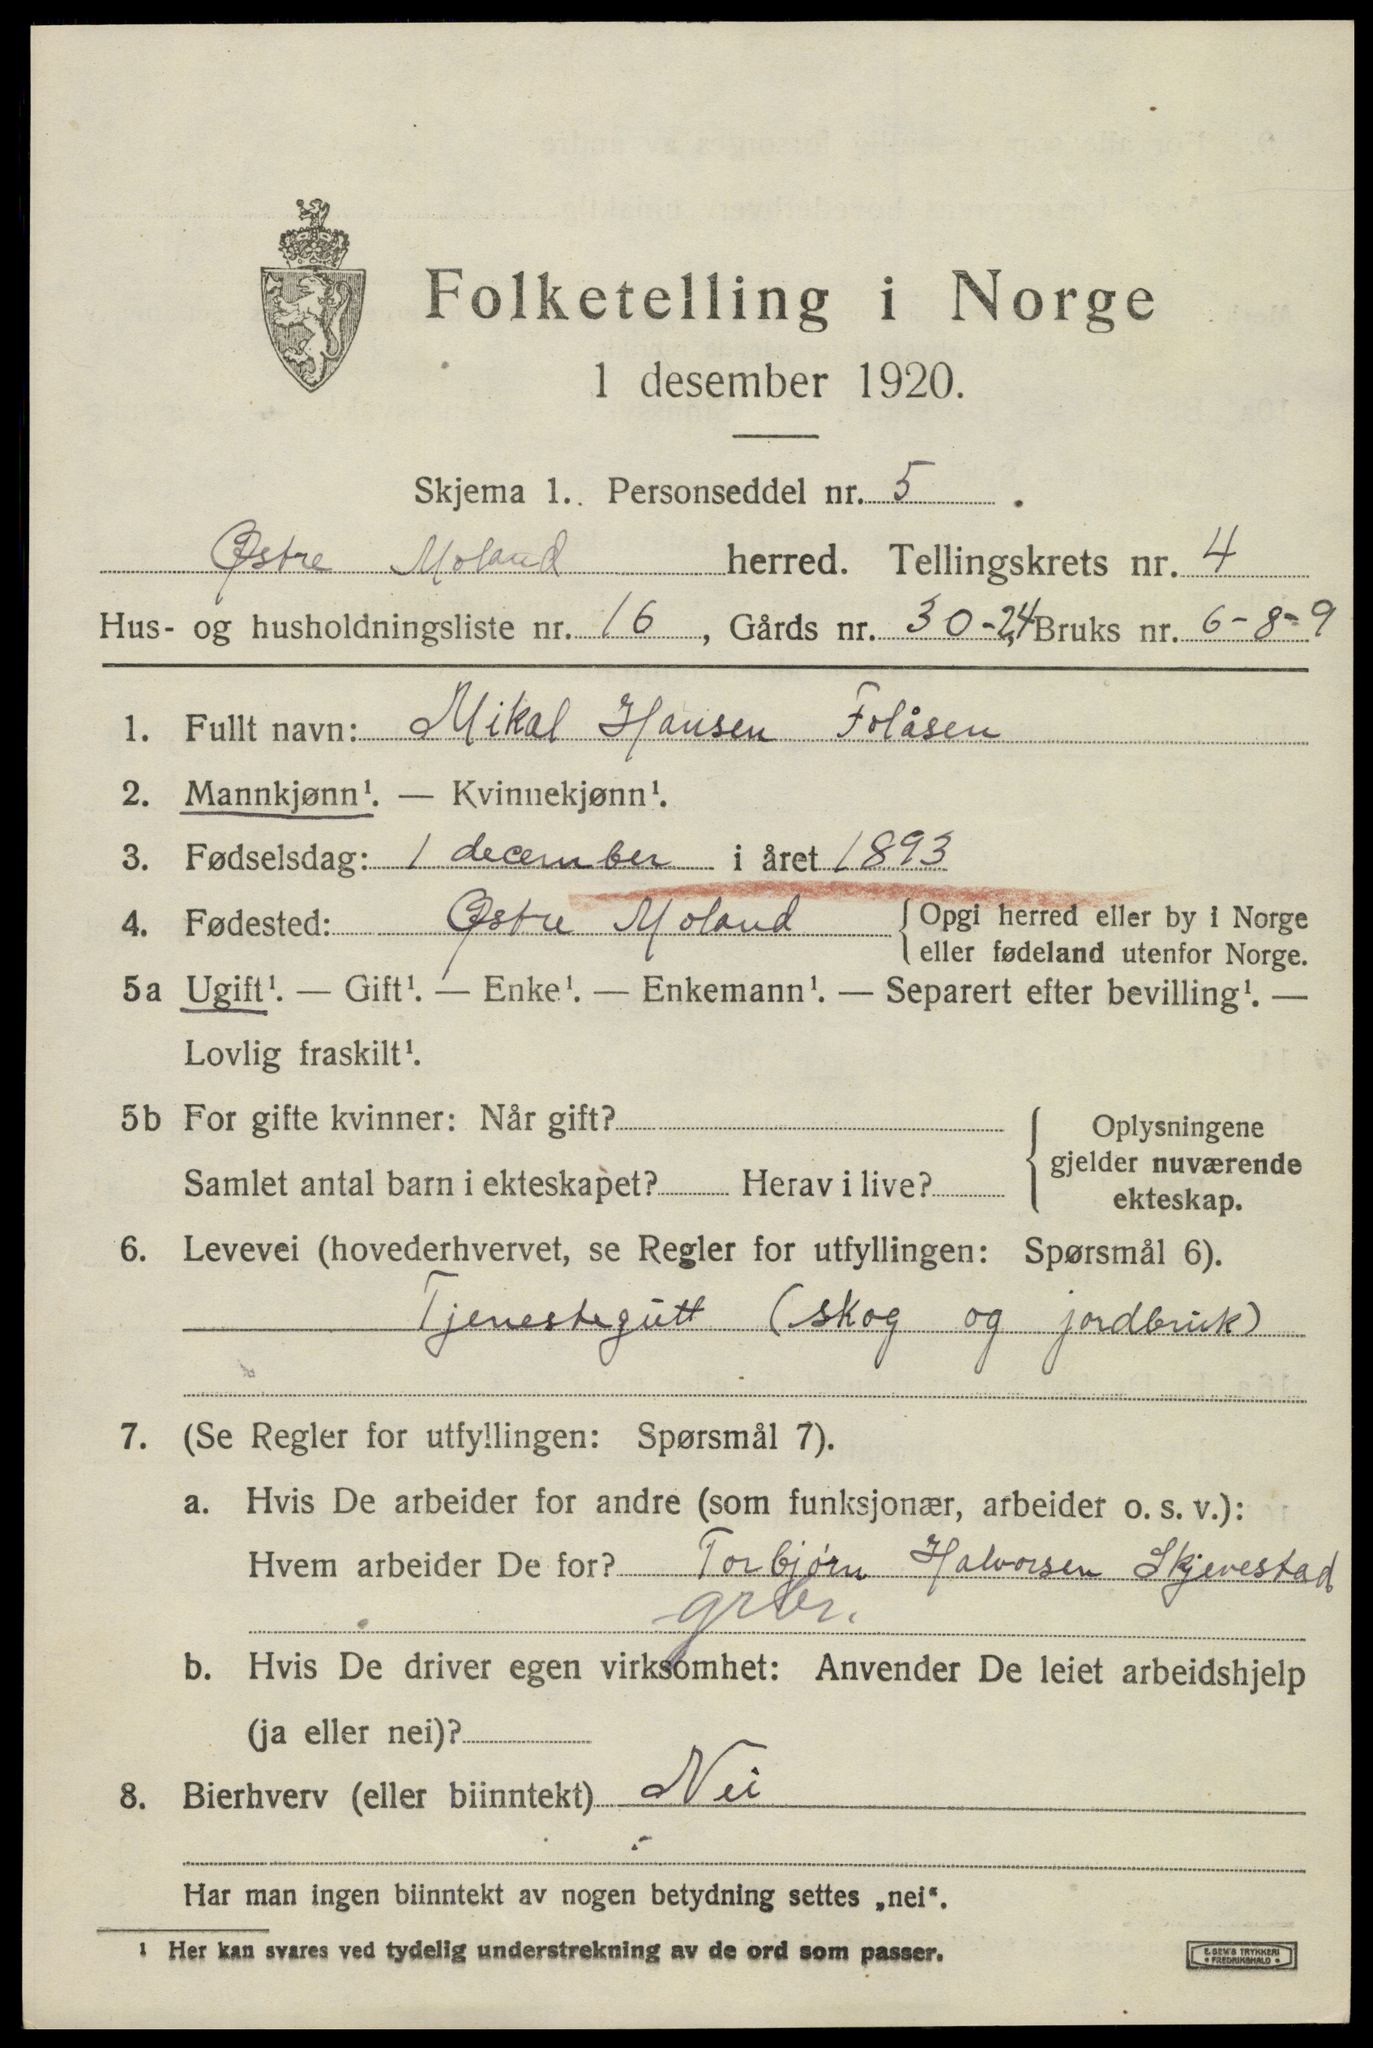 Folketelling i Norge
1 desember 1920.
Skjema 1. Personseddel nr. 5.
Østre Moland herred. Tellingskrets nr. 4
Hus- og husholdningsliste nr. 16, Gårds nr. 30-24 Bruks nr. 6-8-9
1. Fullt navn: Mikal Hansen Folåsen
2. Mannkjønn¹. — Kvinnekjønn¹.
3. Fødselsdag: 1 december i året 1893
4. Fødested: Østre Moland { Opgi herred eller by i Norge
eller fødeland utenfor Norge.
5a Ugift¹. — Gift¹. — Enke¹. — Enkemann¹. — Separert efter bevilling¹. —
Lovlig fraskilt¹.
5b For gifte kvinner: Når gift?
Samlet antal barn i ekteskapet? Herav i live?
Oplysningene
gjelder nuværende
ekteskap.
6. Levevei (hovederhvervet, se Regler for utfyllingen: Spørsmål 6).
Tjenestegutt (skog og jordbruk)
7. (Se Regler for utfyllingen: Spørsmål 7).
a. Hvis De arbeider for andre (som funksjonær, arbeider o. s. v.):
Hvem arbeider De for? Torbjørn Halvorsen Skjevestad
grbr.
b. Hvis De driver egen virksomhet: Anvender De leiet arbeidshjelp
(ja eller nei)?
8. Bierhverv (eller biinntekt) Nei
Har man ingen biinntekt av nogen betydning settes „nei“.
¹ Her kan svares ved tydelig understrekning av de ord som passer.
E. SEM'S TRYKKERI
• FREDRIKSHALD •